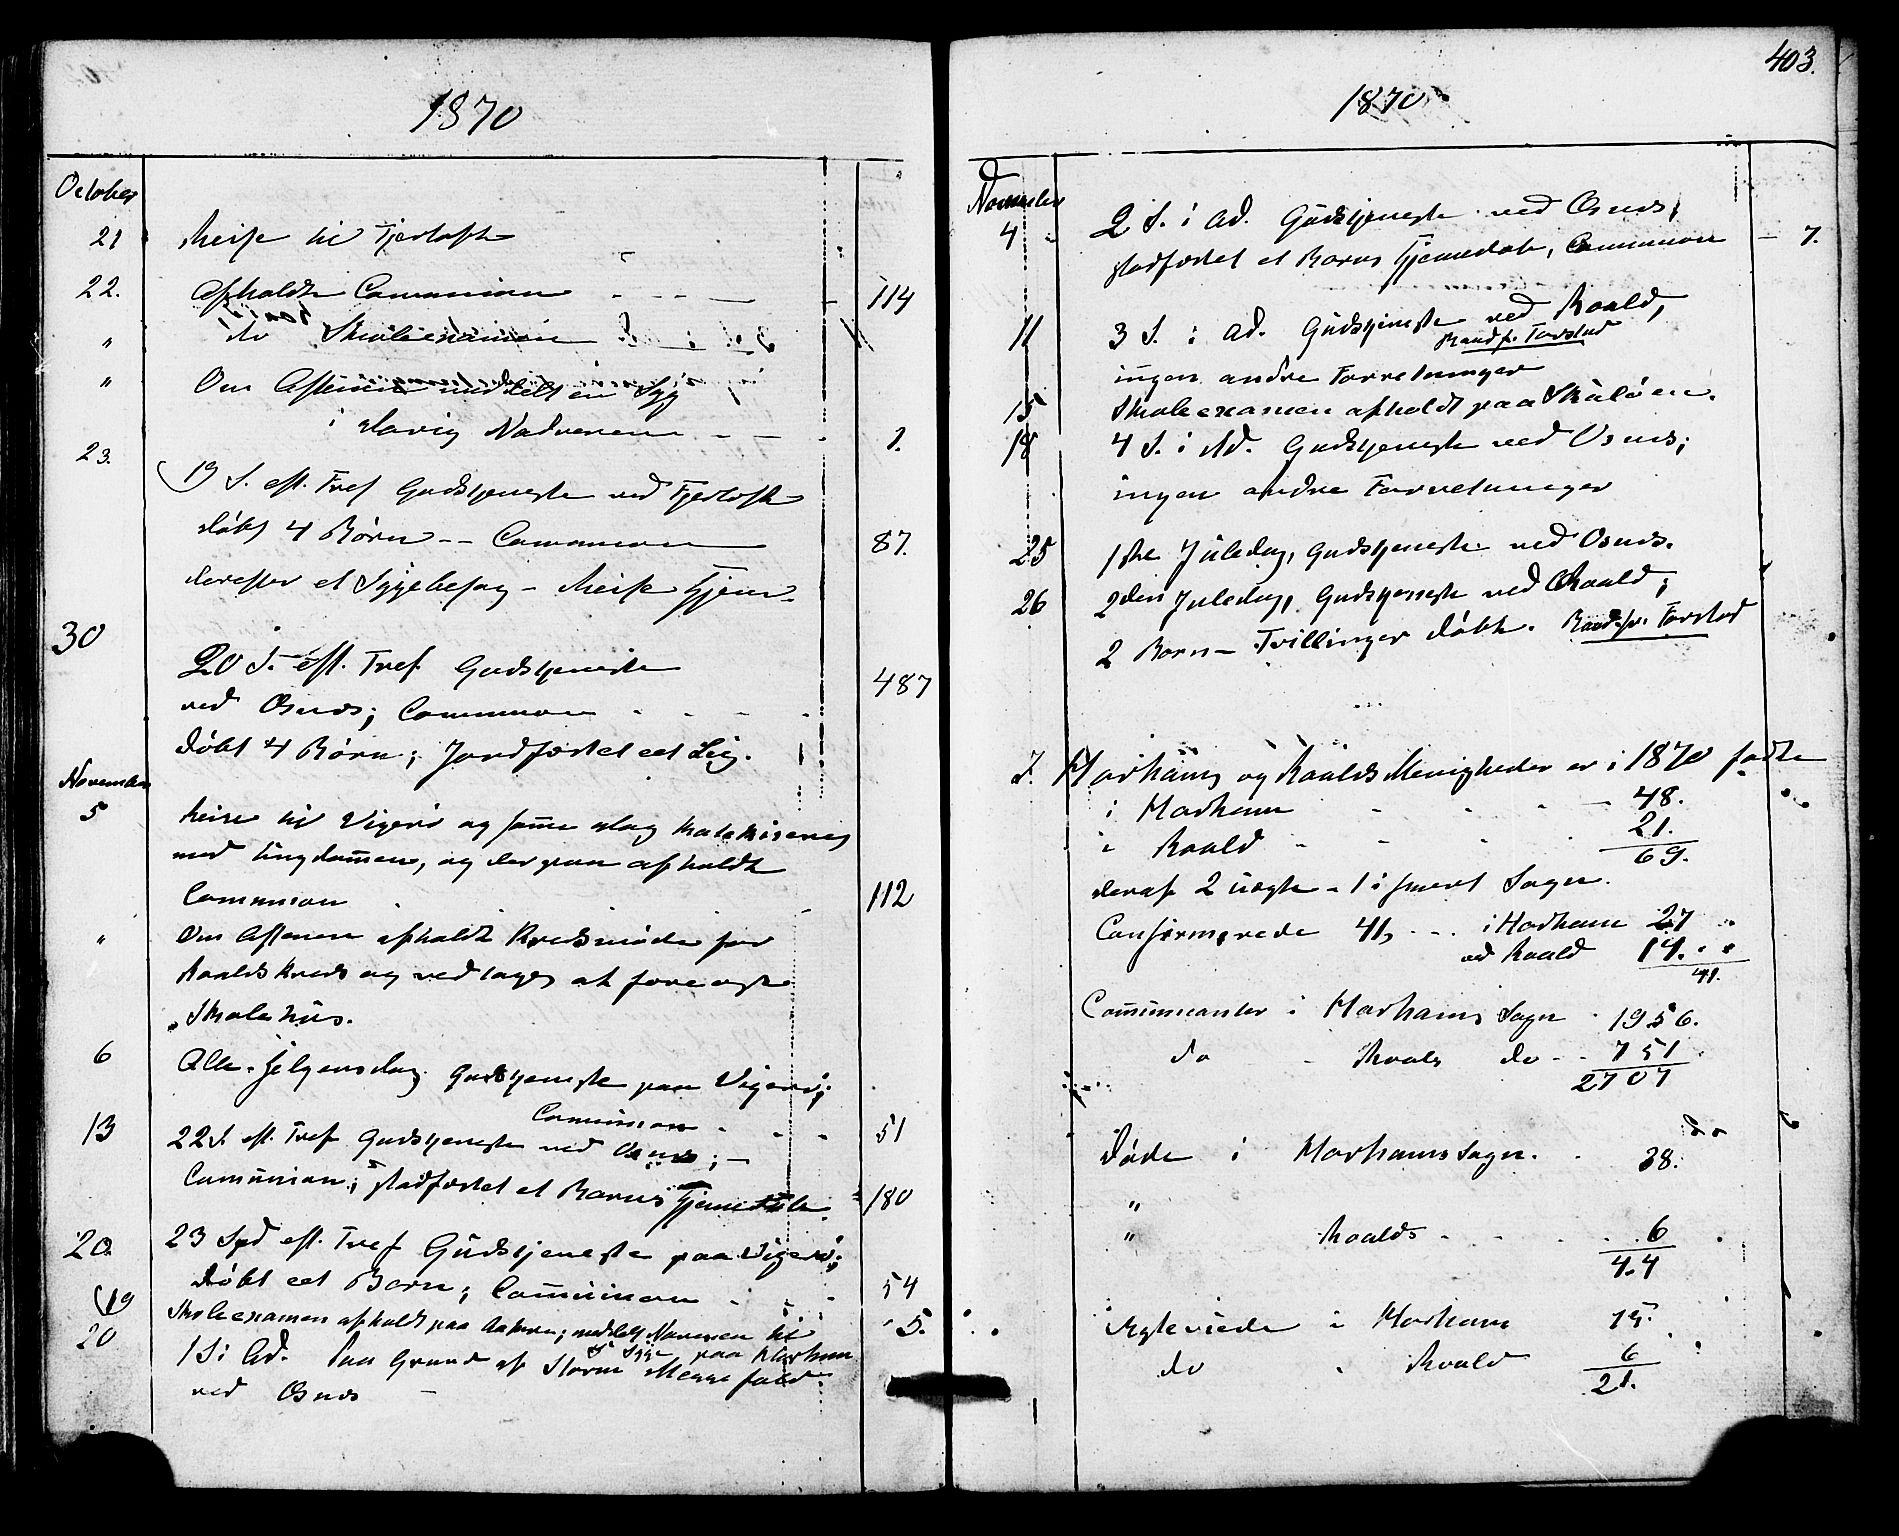 1870
October
21 Reise til Fjertoft
22. Afholdt Communion 114
" do Skoleexamen
" Om Aftenen meddelt en Syg
i Havig Nadveren 1.
23. 19 S. eft. Tref Gudstjeneste ved Fjertoft
døbt 4 Børn -- Communion 87.
derefter et Sygebesøg - Reise hjem.
30 20 S. eft. Tref. Gudstjeneste
ved Osnes; Communion 487
døbt 4 Børn; Jordfæstet eet Lig.
November
5 Reise til Vigerø og samme Dag
med Ungdommen, og derpaa afholdt
Communion 112
" Om Aftenen afholdt Kredsmøde for
Roalds Kreds og vedtaget at
Skolehus.
6 Alle-Helgensdag Gudstjeneste paa Vigerø;
Communion 51
13 22 S. eft. Tref Gudstjeneste ved Osnes;
Communion; stadfæstet et Barns Hjemmedaab 180
20. 23 Spd eft. Tref Gudstjeneste paa Vigerø;
døbt eet Barn; Communion 54
19 Skoleexamen afholdt paa meddelt Naveren til
5 Syge paa Harham 5.
20 1 S i Ad. Paa Grund af Storm Messefald
ved Osnes
403.
1870
November
4 2 S. i Ad. Gudstjeneste ved Osnes;
stadfæstet et Barns Hjemmedaab, Communion 7.
11 3 S. i Ad. Gudstjeneste ved Roald,
Baad fr. Torstad
ingen andre Forretninger
15 Skoleexamen afholdt paa Skuløen.
18 4 S. i Ad. Gudstjeneste ved Osnes;
ingen andre Forretninger
25 1ste Juledag, Gudstjeneste ved Osnes.
26 2den Juledag, Gudstjeneste ved Roald;
2 Børn - Tvillinger døbt. Baad fr. Torstad
I Harhams og Roalds Menigheder er i 1870 fødte
i Harham 48.
i Roald 21.
69.
deraf 2 uægte - 1 i hvert Sogn.
Confirmerede 41, i Harham 27
ved Roald 14.
41.
Communicanter i Harhams Sogn 1956.
do - Roalds do - 751
2707
Døde i Harhams Sogn. 38.
" " Roalds 6
44
Ægteviede i Harham 15.
do Roald 6
21.